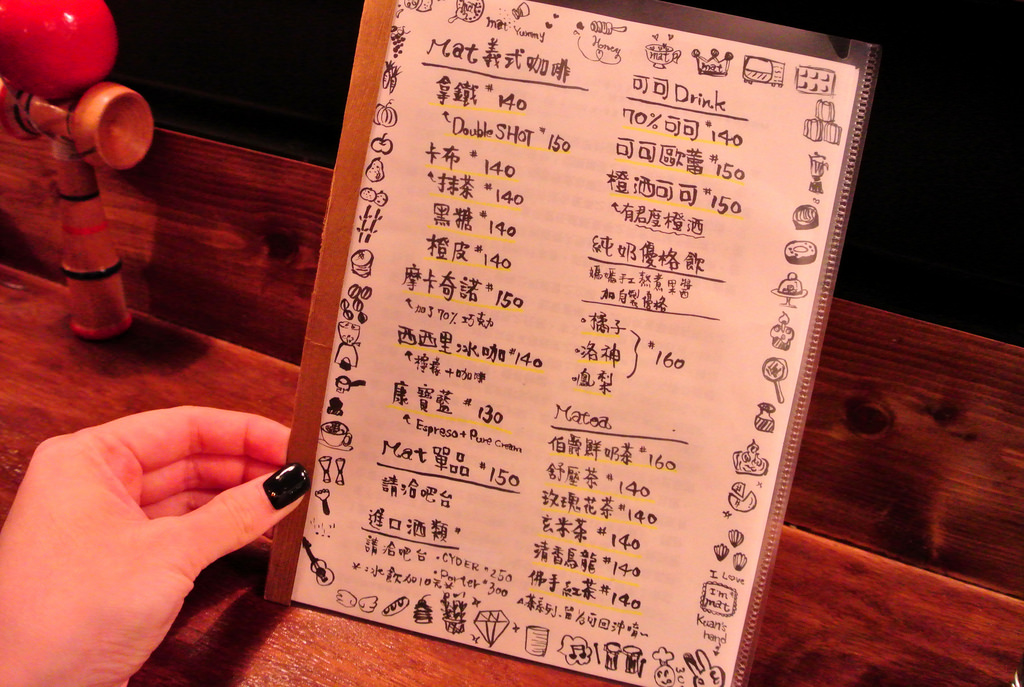 mat Yummy
Honey
mat
mat
Mat 義式咖啡
拿鐵 #140
Double SHOT #150
卡布 #140
抹茶 #140
黑糖 #140
橙皮 #140
摩卡奇諾 #150
加了70%巧克力
西西里冰咖 #140
檸檬+咖啡
康寶藍 #130
Espreso+Pure Cream
Mat 單品 #150
請洽吧台
進口酒類 #
請洽吧台 ·CYDER #250
·Porter #300
*冰飲加10元*
可可 Drink
70%可可 #140
可可歐蕾 #150
橙酒可可 #150
有君度橙酒
純奶優格飲
媽媽手工熬煮果醬
加自製優格
·橘子
·洛神
·鳳梨
#160
Matea
伯爵鮮奶茶 #160
舒壓茶 #140
玫瑰花茶 #140
玄米茶 #140
清香烏龍 #140
佛手紅茶 #140
I LOVE
I'm mat
Kuan's
hand